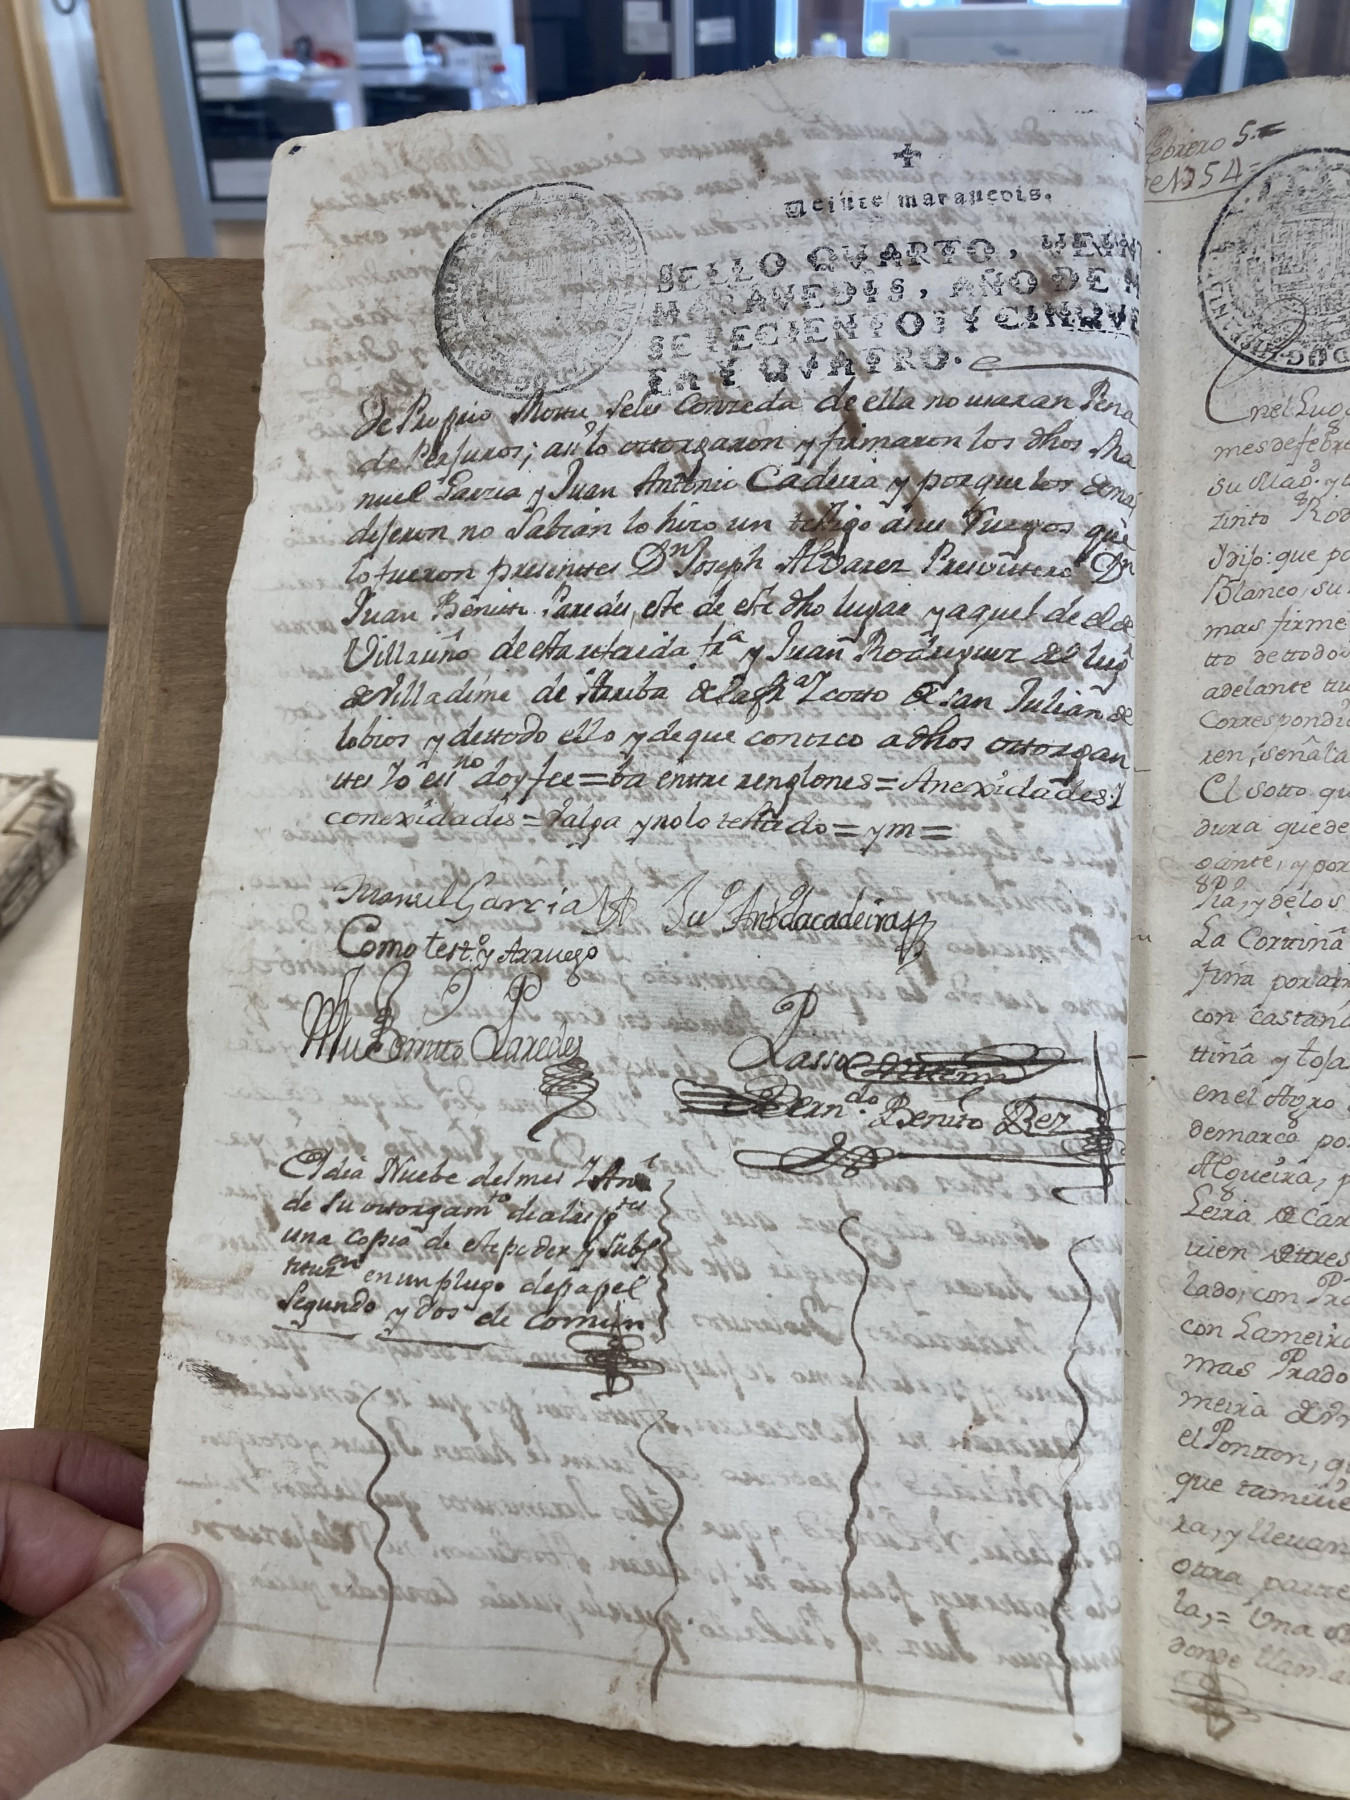 Veinte marauedis.
SELLO QVARTO, VEIN
MARAVEDIS, AÑO DE M
SETECIENTOS Y CINQVE
TA Y QVATRO.
de Propio Mottu seles conzeda de ella no usaran Pena
de Perjuros; asi lo ottorgaron y firmaron los dhos Ma
nuel Garzia y Juan Anttonio Cadeira y porque los demas
dijeron no sabian lo hizo un testigo a sus Ruegos que
lo fueron presenttes Dn Joseph Alvarez Presvittero Dn
Juan Benitto Paredes, este de este dho lugar y aquel de el de
Villarino de esta referida fra y Juan Rodriguez del lugr
de Villadime de Arriba de la fra y cotto de san Julian de
lobios y de ttodo ello y de que conozco a dhos ottorgan
ttes Yo essno doy fee = ba enttre renglones = Anexidades y
conexidades = Valga y no lo testtado = ym =
Manuel Garcia Jun Antto dacadeira
Como testo y Arruego
Jun Benitto Paredes
Passo antemi
Berndo Benito Rez
El dia Nuebe del mes y Año
de su ottorgamto di a las ptes
una copia de este poder y subs
tituzon en un pliego de papel
segundo y dos de Comun
ebrero 5
e 1754
En el Lug
mes de febre
su Mad. y
tinto Rod
Dijo: que po
Blanco, su
mas firme
tto de ttodos
adelante tu
Correspondi
ren, señala
El sotto qu
dura quede
gante, y por
Ra, y de los
La Corttina
fina por ar
con castañ
ttina y tosa
en el Agro
demarca po
Algueira, p
Leira de Car
uien de tres
lado, con Pra
con Lameira
mas Prado
meira de
el Pontton, q
que tamuie
ra, y lleuan
otra partte
la, = Una
donde llama